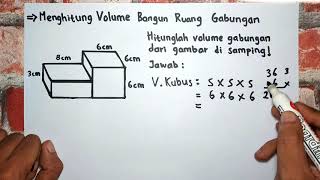 ⇒ Menghitung Volume Bangun Ruang Gabungan
Hitunglah volume gabungan
dari gambar di samping!
Jawab:
V. Kubus = S × S × S
= 6 × 6 × 6
=
36 3
6 ×
2
8cm
6cm
3cm
6cm
6cm